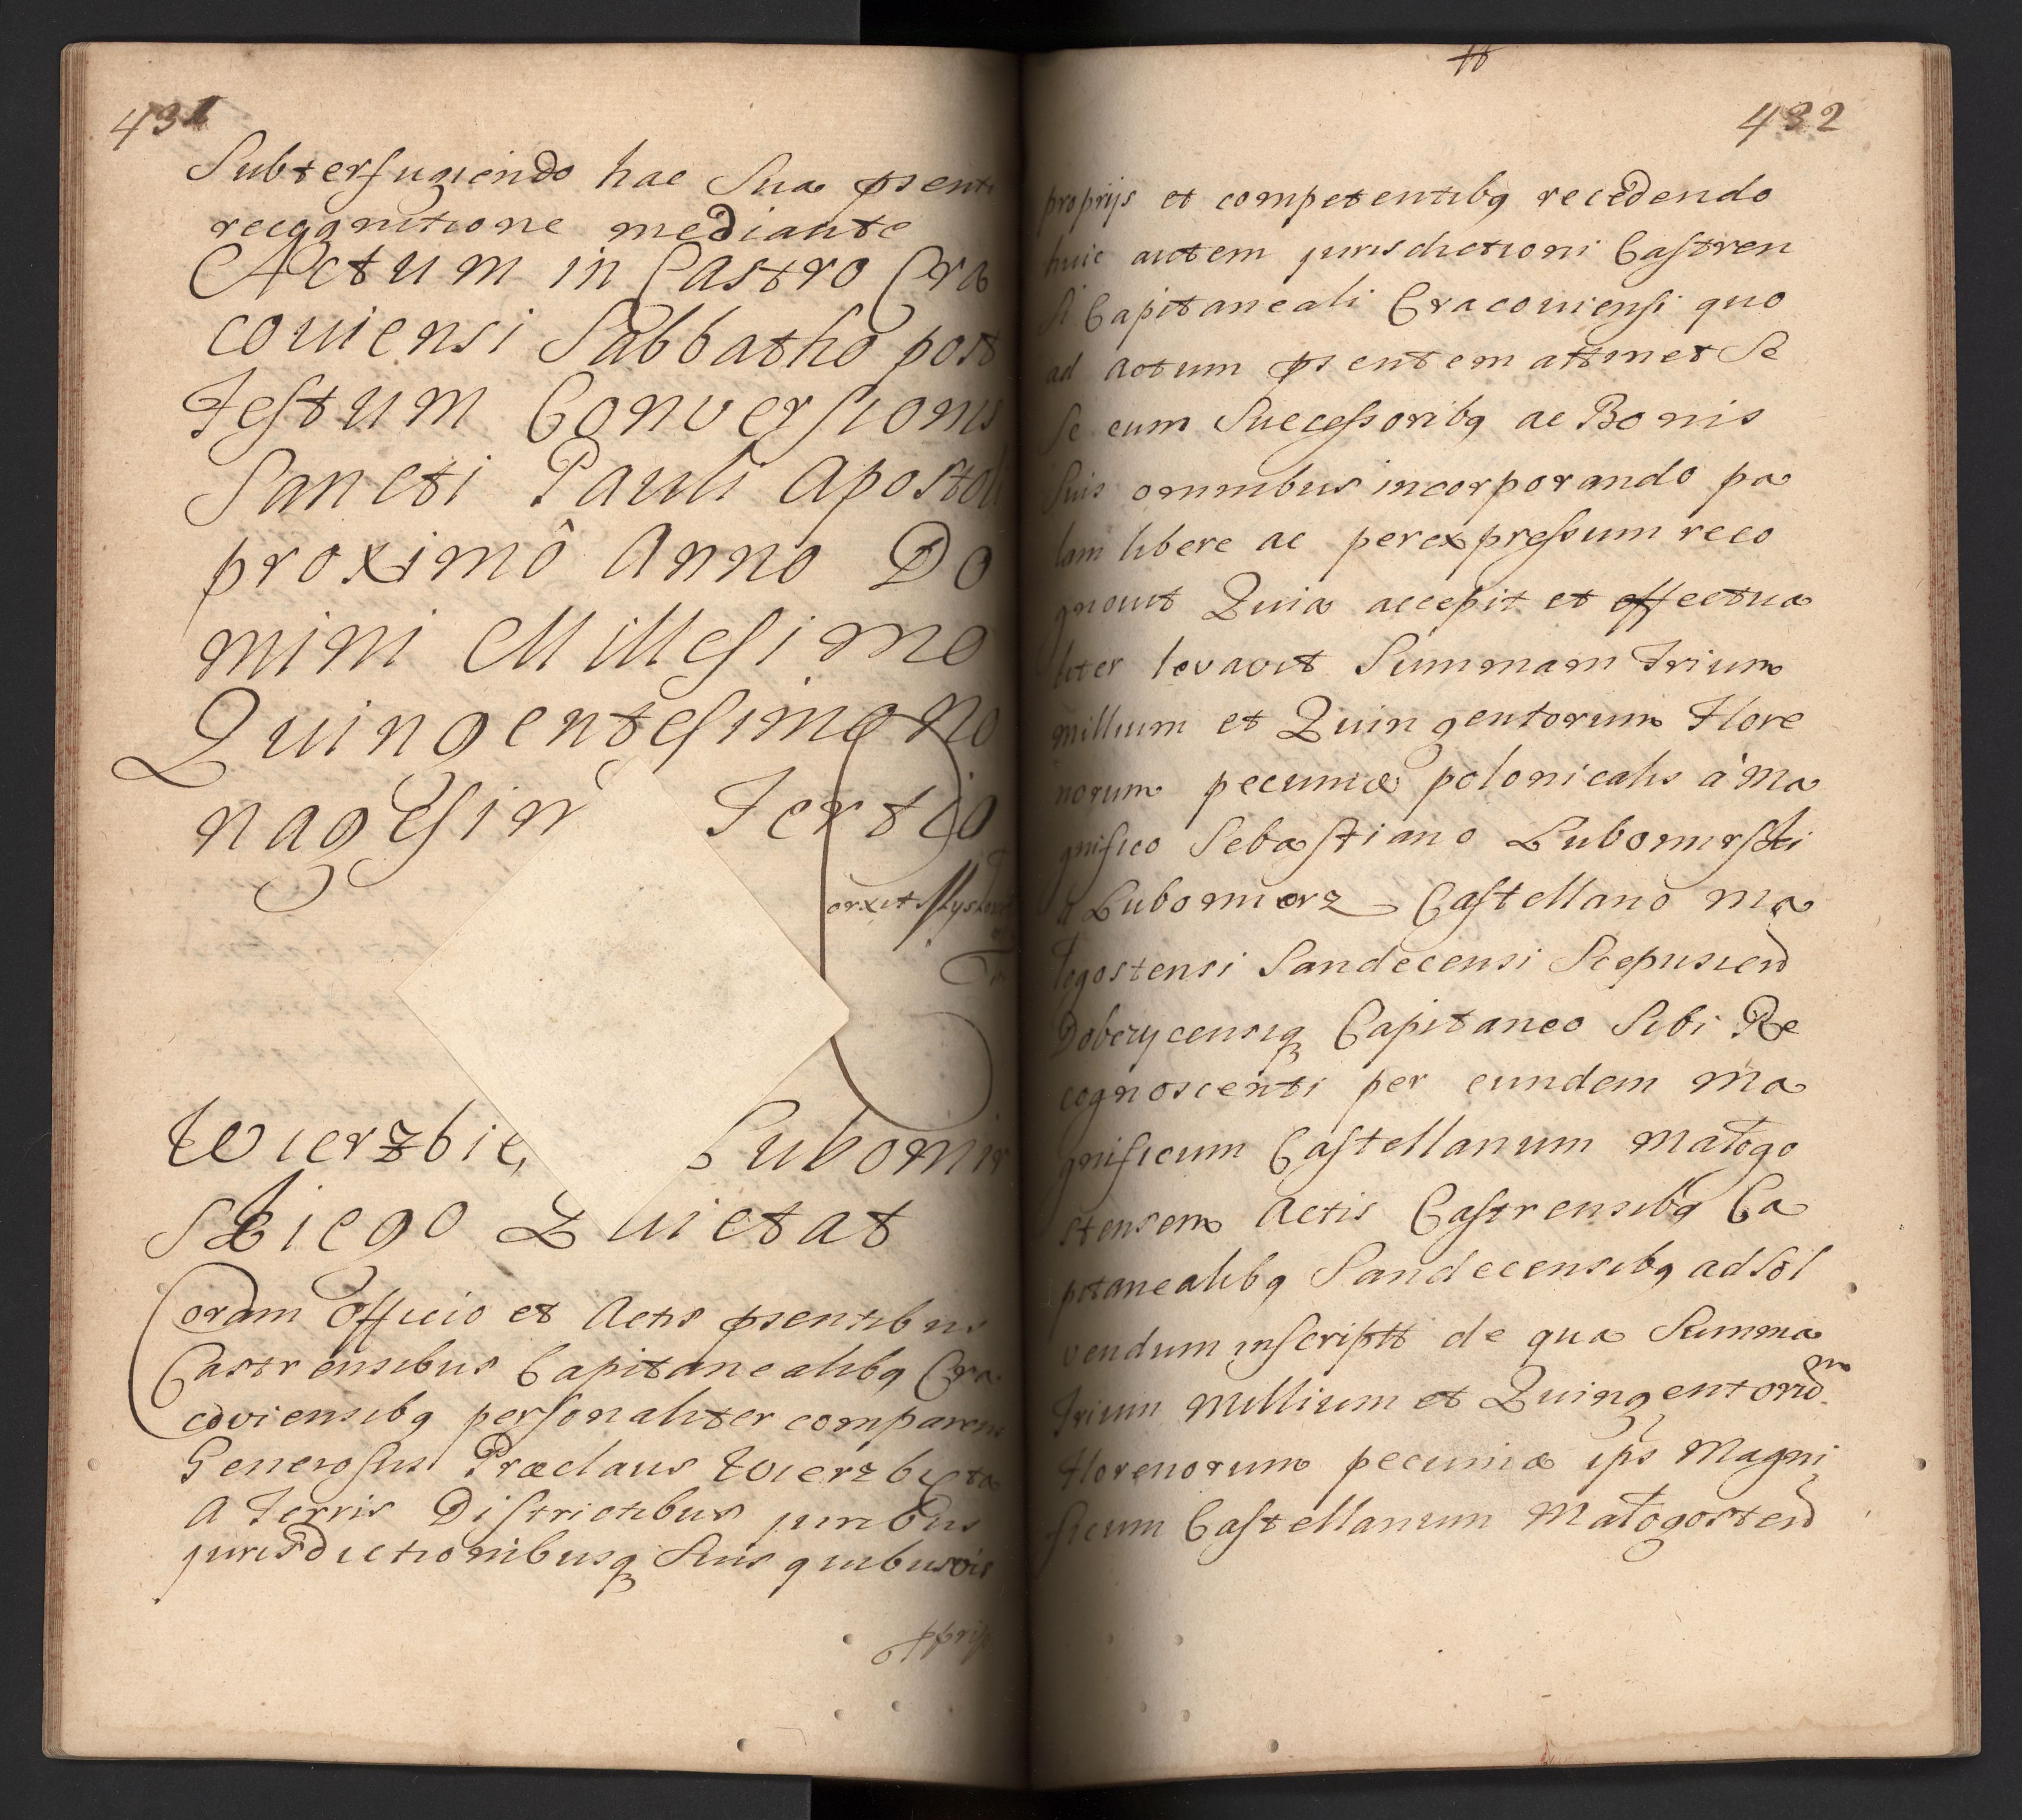 431
Subterfugiendo hac Sua psenti
recognitione mediante
Actum in Castro Cra
coviensi Sabbatho post
Festum Conversionis
Sancti Pauli Apostoli
proximô Anno Do
mini Millesimo
Quingentesimo No
nagesim Tertio
Wierzbię Lubomir
skiego Quietat
Coram Officio et Actis psentibus
Castrensibus Capitanealibq Cra
coviensibq personaliter comparens
Generosus Præclaus Wierzbięta
A Terris Districtibus juribus
jurisdictionibusq Suis quibusvis
432
proprijs et competentibq recedendo
huic autem jurisdictioni Castren
si Capitaneali Cracouiensi quo
ad Actum psentem attinet Se
Se cum Successoribq ac Bonis
Suis omnibus incorporando pa
lam libere ac per expressum reco
gnouit Quia accepit et effectua
liter levavit Summam Trium
millium et Quingentorum Flore
norum pecuniæ polonicalis à Ma
gnifico Sebastiano Lubomirski
a Lubomierz Castellano Ma
łogostensi Sandecensi Scepusień
Dobczycensiq Capitaneo Sibi Re
cognoscenti per eundem Ma
gnificum Castellanum Małogo
stensem Actis Castrensibq Ca
pitanealibq Sandecensibq ad Sol
vendum inscriptt de qua Summa
Trium Millium et Quingentorum
Florenorum pecuniæ ips Magni
ficum Castellanum Małogosteń